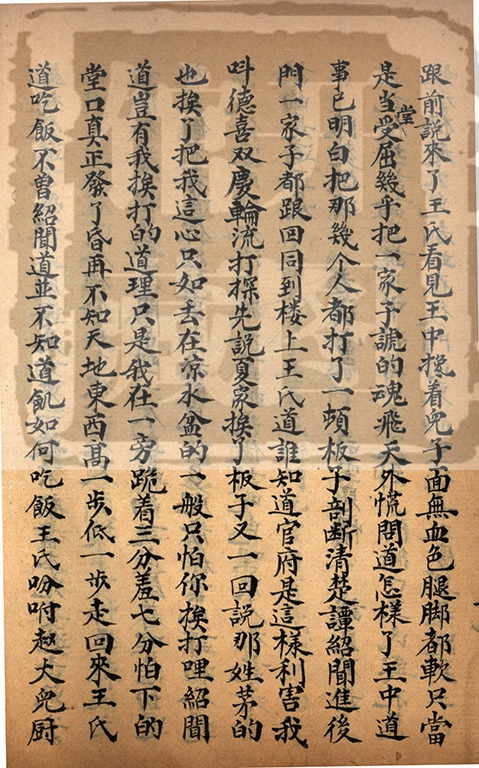 跟前說來了王氏看見王中攙着兒子面無血色腿脚都軟只當
是當堂受屈幾乎把一家子諕的魂飛天外慌問道怎樣了王中道
事已明白把那幾个人都打了一頓板子剖斷清楚譚紹聞進後
門一家子都跟回同到楼上王氏道誰知道官府是這樣利害我
呌德喜双慶輪流打探先說夏家挨了板子又一回說那姓茅的
也挨了把我這心只如丢在凉水盆的一般只怕你挨打哩紹聞
道豈有我挨打的道理只是我在一旁跪着三分羞七分怕下的
堂口真正發了昏再不知天地東西髙一步低一步走回來王氏
道吃飯不曽紹聞道並不知道飢如何吃飯王氏吩咐赵大兒厨